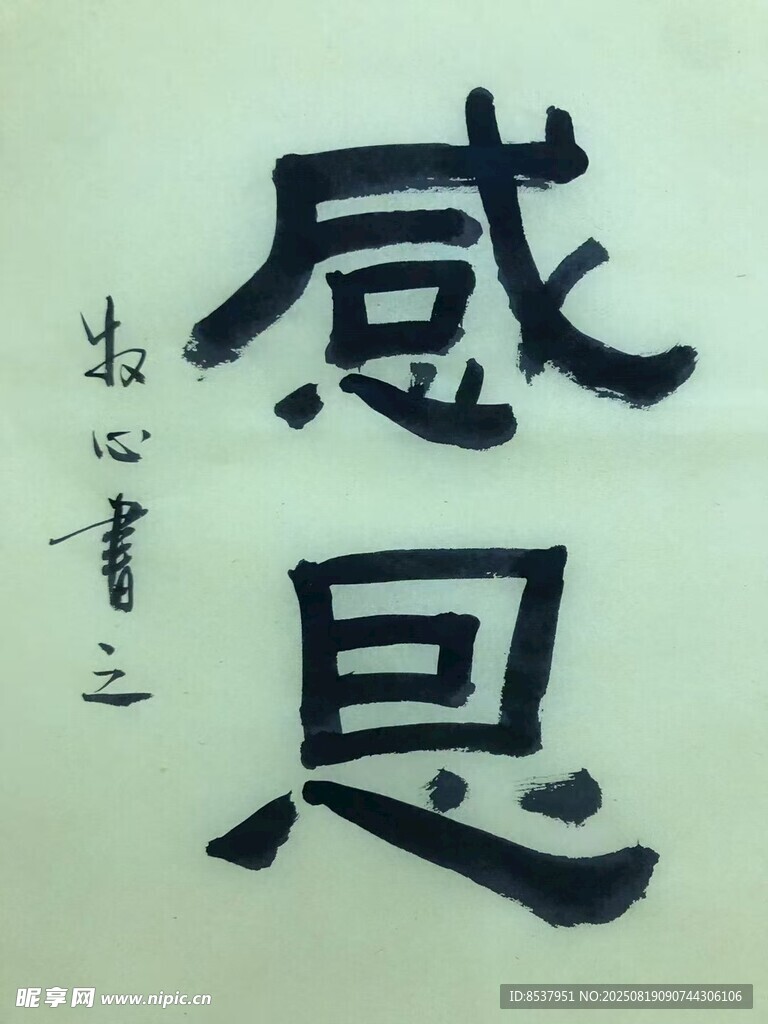 感恩
牧心書之
昵享网 www.nipic.cn
ID:8537951 NO:20250819090744306106